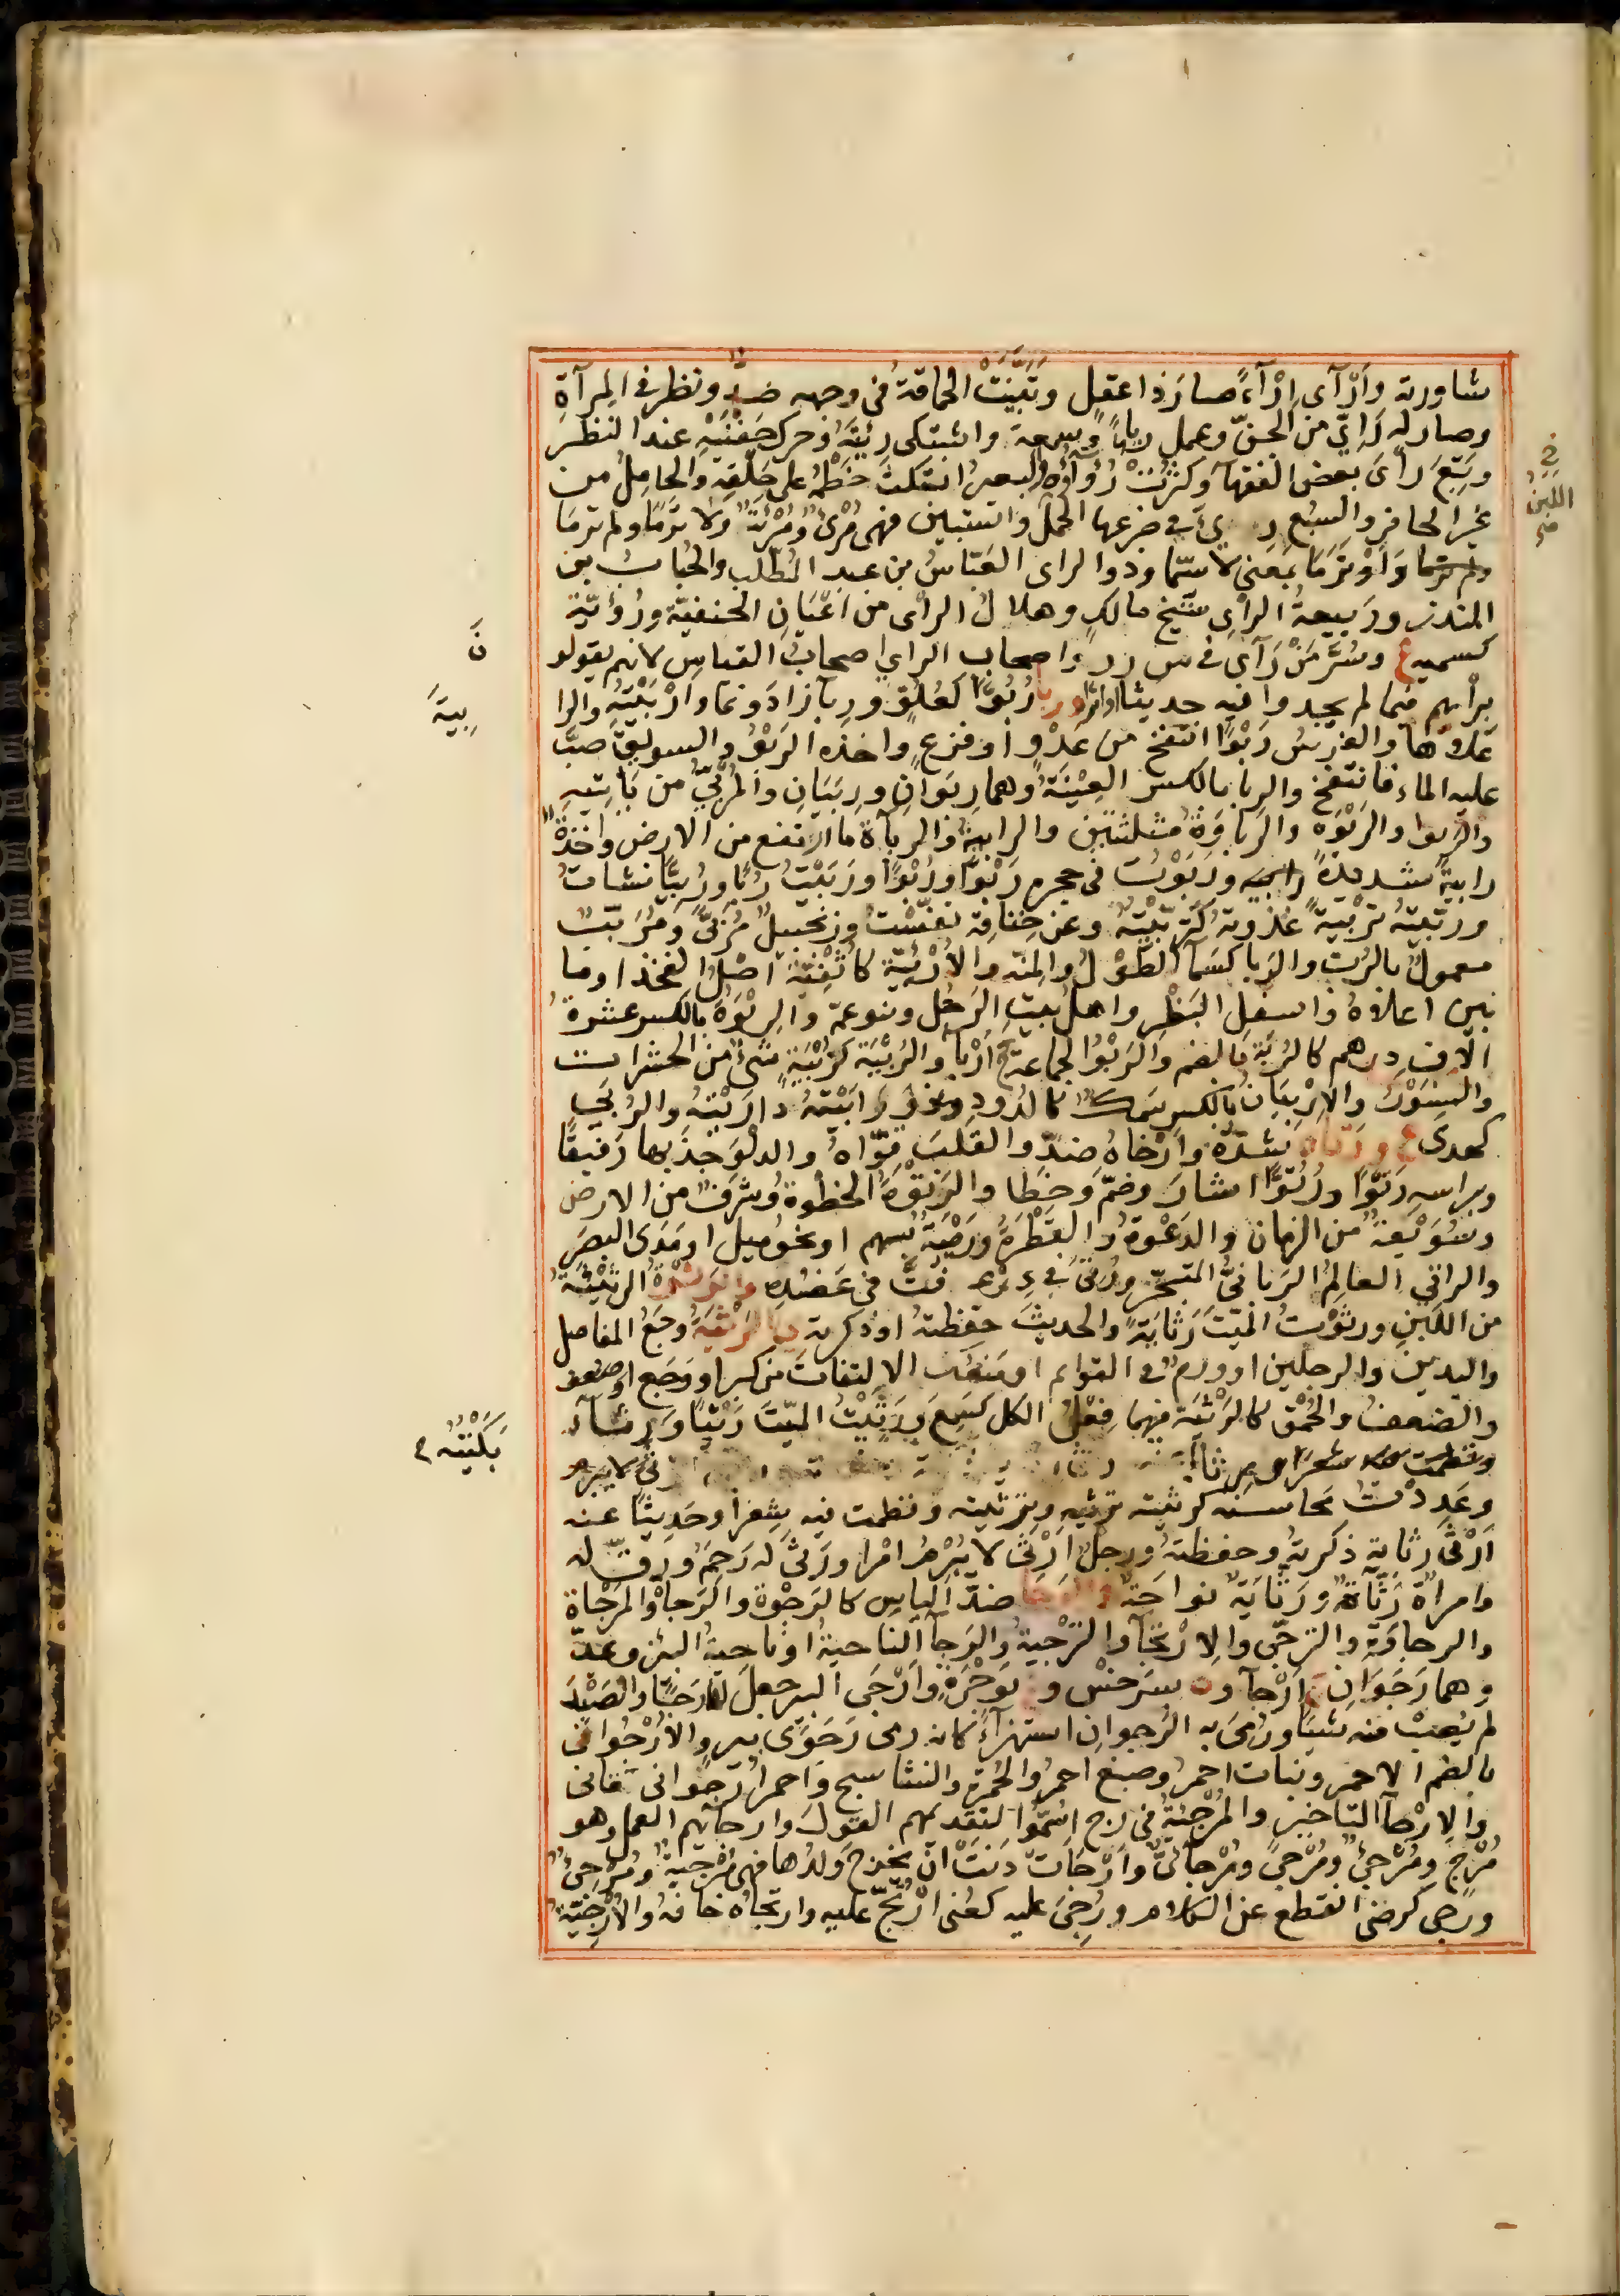 شاورته وأرْآى إرْآءً صار ذا عقل وتَبَيَّنَتْ الحماقة في وجهه ضدّ ونظر في المِرآة
وصار له رَئِيّ من الجنّ وعمل رياءً وسمعة واشتكى رئته وحرك جَفْنَيْهِ عند النظر
وتَبِعَ رأىَ بعض الفقهآ وكَثُرَتْ رُؤَآؤُه والبعيرُ انتكَثَ خَطْمُه على حَلْقِه والحامل من
غير الحافر والسبُع رِيءَ في ضرعها الحمل واستبين فهى مُرْءٍ ومُرْئية ولا ترَمَا ولم ترَمَا
وأوْ ترَمَا بمعنى لاسيّما وذوا الراى العَبّاسُ بن عبد المُطّلب والحُبابُ بن
المنذر ورَبيعةُ الراي شَيْخ مالكٍ وهلالُ الرأى من أعْيَانِ الحنفيّة ورُؤَيّة
كسمية ع وسُرَّ مَنْ رَآى في س ر ر واصحاب الراي اصحابُ القياسِ لانهم يقولو
برأيهم فيما لم يجدوا فيه حديثا او اثرا ربا رُبُوًّا كعُلُوٍّ ورِبآ زادَ ونما وارْبَيْتُه والرا
عَلاها والفرسُ رَبْوًا انتفخ من عَدْوٍ او فزعٍ واخذه الرَبْوُ والسويقَ صبَّ
عليه الماء فانتفخ والرِبا بالكسر العِيْنَةُ وهما رِبَوانِ ورِبَيَانِ والمُرْبِيّ من يَأتيهِ
والرَبوا والرَبْوَه والرَباوَة مثلثتين والرابية والرباة ما ارتفع من الارض واخْذةً
رابيةً شديدةً ورَبَوْتُ في حجره رَبْوًا ورُبُوًّا ورَبَيْتُ رَبًا ورُبِيًّا نشأتُ
وربّيتهُ تَرْبيةً غذوته كَتَرَبَّيْتُه وعن خِناقه نفّسْت وزنجبيلٌ مُربًّى ومُرَبَّبٌ
معمولٌ بالرُبّ والرَبا كسَمآ الطَوْلُ والمنه والأُرْبِيّة كاثْفِيّة اصْلُ الفخذ او ما
بين اعلاهُ واسفلِ البَطْنِ واهل بيت الرجُل وبنو عمّه والرِبْوَة بالكسر عشرةُ
الآفِ درهم كالرُبَة بالضم والرَبْوُ الجماعة ج أرْباء والرُبْيَة كزُبْيَةٍ شئٌ من الحشرات
والسِنَّوْر والإرْبِيَانُ بالكسر سَمك كالدُود ورابَيْتُه دارَيْتُه والرُبَى
كهدى ع ورتاه شَدّه وأرْخاه ضدّ والقَلبَ قوّاهُ والدلْوَ جذَبها رَفيقًا
وبراسهِ رَتْوًا ورُتُوًّا اشار وضمّ وخطا والرَتْوَة الخطْوة وشرَفٌ من الارض
وسُوَيْعَة من الزمان والدَعْوة والقَطْرَة ورَمْيَة بسهم او نحو ميل او مَدَى البصَرِ
والراتى العالِم الرَبانيّ المتبحّر ورُتِى في ذرعه فُتّ في عَضُدِه والرَثْوَة الرثيئة
من اللَبنِ ورثَوْتُ الميّتَ رَثايَةً والحديثَ حفِظته او ذكرته الرَثْيَةُ وجَعُ المفاصل
واليدين والرجلين او ورم في القوائم او منعك الالتفات من كبر او وجع او ضعف
والضعف والحُمْق كالرَثْيَة فيهما فِعْلُ الكل كسَمِعَ ورَثَيْتُ الميّتَ رَثْيًا ورِثآء
وعَدَدْتُ محاسنه كرثيته ترثيه وترثيته ونظمت فيه شِعرًا وحَدِيثًا عنه
أرْثِى رِثايةً ذكرته وحفظته ورجلٌ أرْثَى لا يُبْرِمُ امْرا ورَثَى له رَحِمَ ورقّ له
وامرأة رَثّاءة ورَثّايَة نواحَة والرَجا ضدّ الياس كالرَجْوة والرَجاة والمَرْجاة
والرجاوَة والترجّي والارْتجآ والترْجية والرَجآ الناحية او ناحيةُ البئر ويمدّ
وهما رَجَوَانِ ج أرْجآ وة بسَرَخْسْ و ع بوَجْرَة وأرْجَى البير جعل لها رَجًا والصَيْدَ
لم يُصِبْ منه شيئًا ورُمِىَ به الرَجوان استهزآءً كانه رمى رَجَوَى بير والأُرْجُوانُ
بالضم الاحمر ونبات احمرُ وصبغ احمرُ والحُمْرة والنشاسبج واحمر أرجوانى قانى
والارْجآ التاخير والمُرْجِئة في ر ج ا سُمُّوا لتقديمهم القولَ وارجآئهم العمل وهو
مُرْجٍ ومُرْجِئٌ ومُرْجِىّ ومُرْجآئيّ وأرْجَأتْ دَنَتْ أن يخرج وَلدُها فهى مُرْجِية ومُرْجِئٌ
ورجى كرضى انقطع عن الكلام ورُجِىَ عليه كعُنى أرْتِجَ عليه وارتجاه خافه والأُرْجِيّة
في اللبن صح
نَ
بِيَةَ
بَكَيْتُه